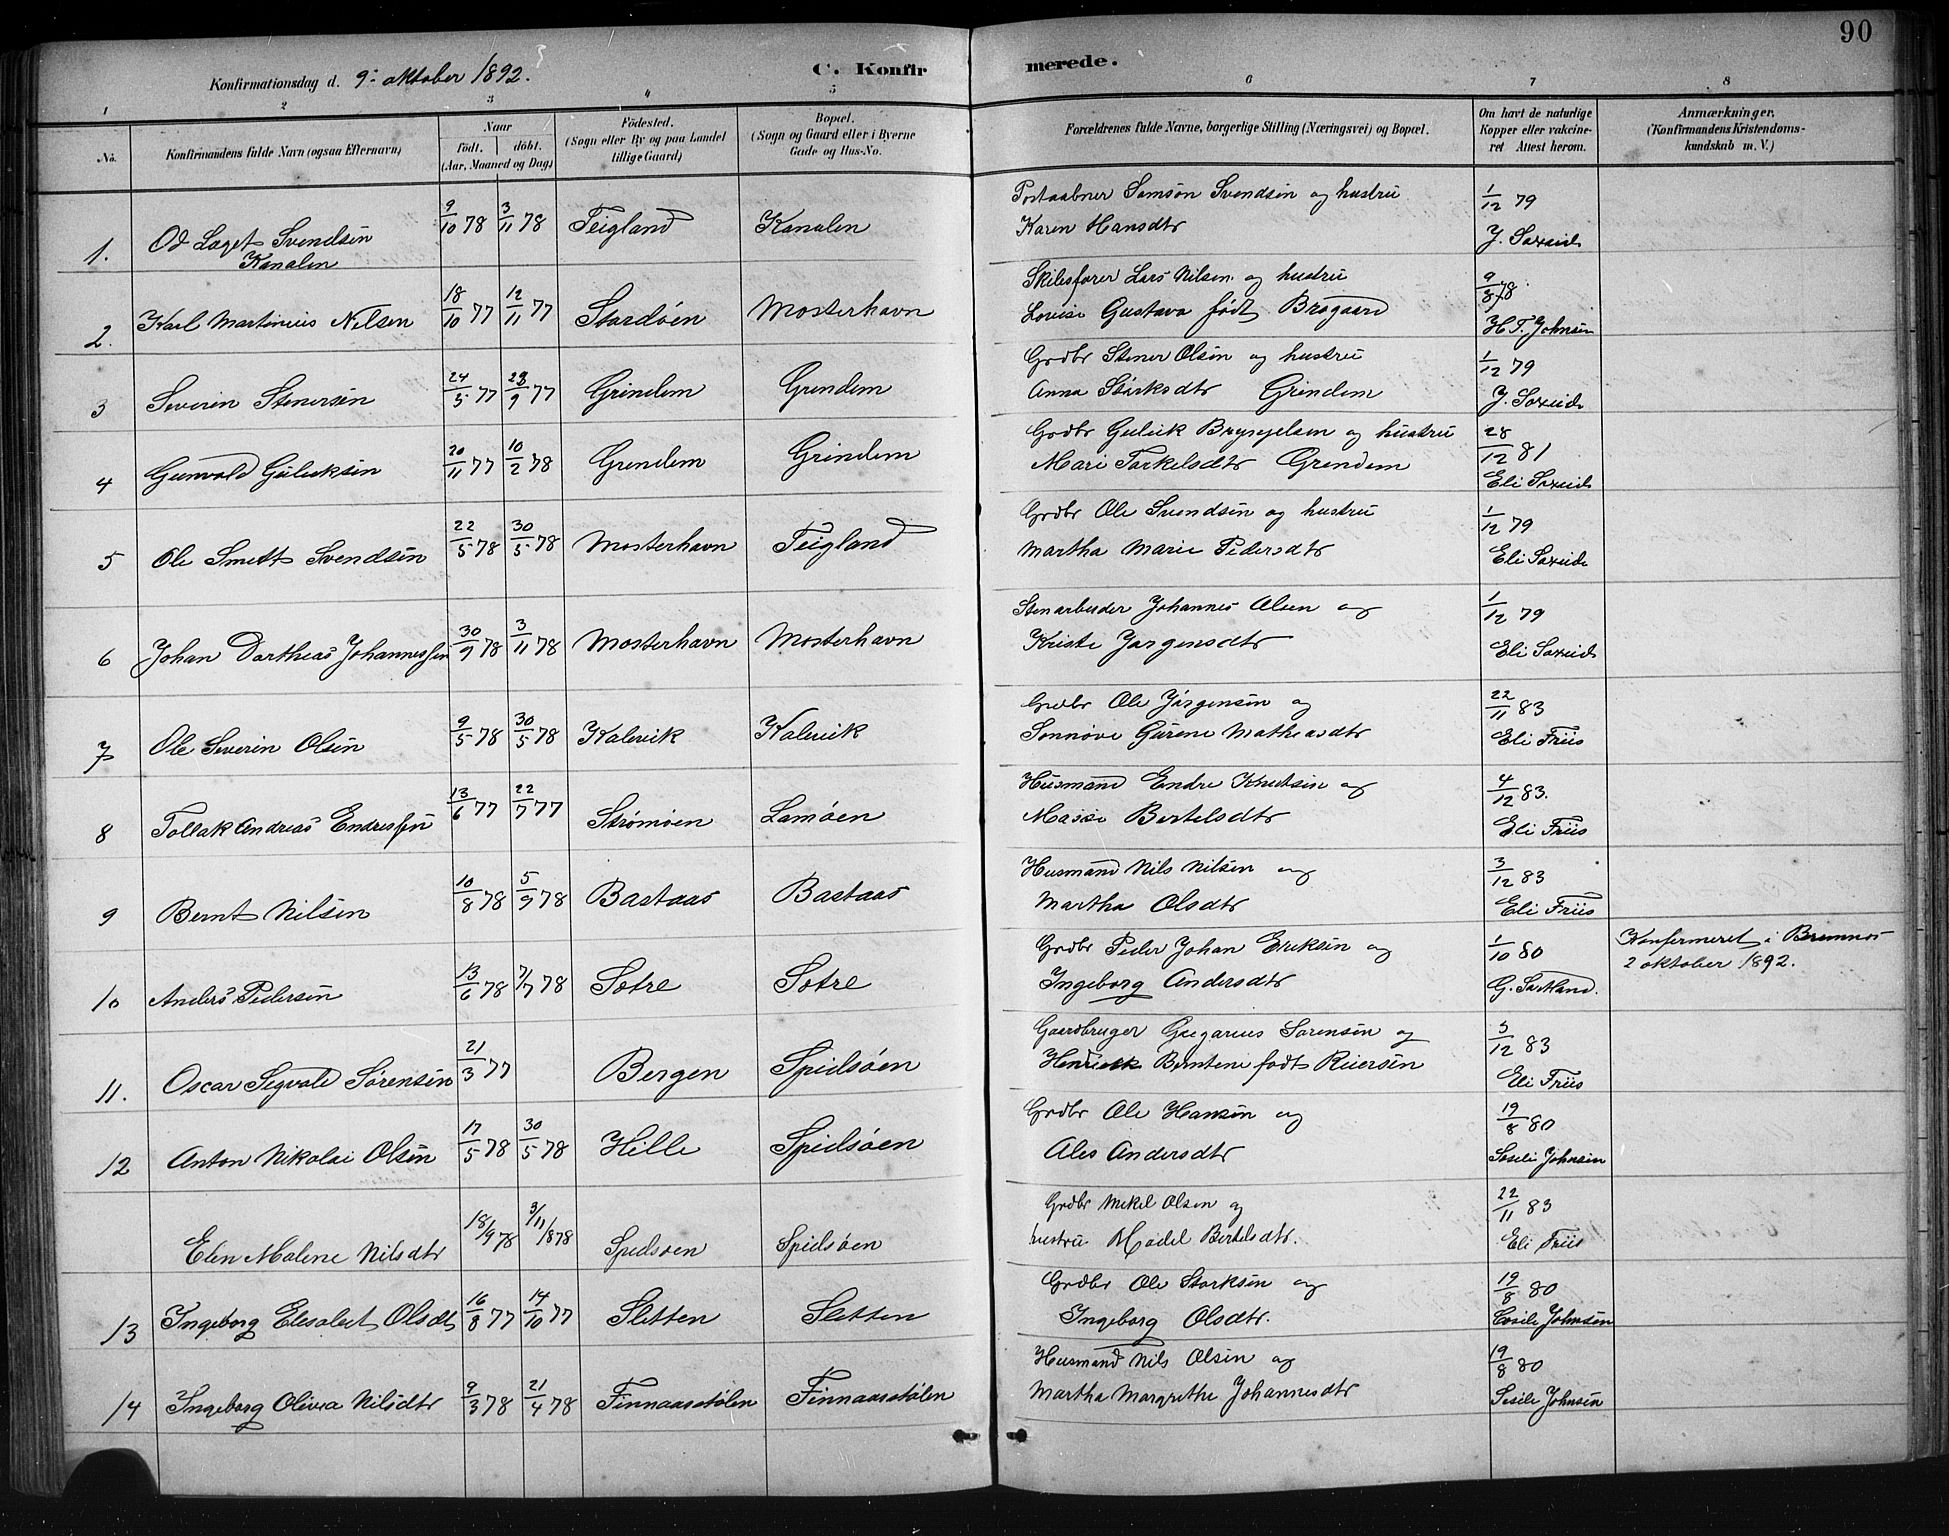 90
Konfirmationsdag d. 9: oktober 1892.
C. Konfirmerede.
1 2 3 4 5 6 7 8
No.
Konfirmandens fulde Navn (ogsaa Efternavn)
Naar
födt. döbt.
(Aar, Maaned og Dag)
Födested.
(Sogn eller By og paa Landet
tillige Gaard)
Bopæl.
(Sogn og Gaard eller i Byerne
Gade og Hus-No.
Forældrenes fulde Navne, borgerlige Stilling (Næringsvei) og Bopæl.
Om havt de naturlige
Kopper eller vakcine-
ret Attest herom.
Anmærkninger.
(Konfirmandens Kristendoms-
kundskab m. V.)
Postaabner Samson Svendsen og hustru 1/12 79
1. Od Laget Svendsen 9/10 78 3/11 78 Teigland Kanalen Karen Hansdtr J. Saxeid
Kanalen
Skibsfører Lars Nilsen og hustru 9/3 78
2. Karl Martinius Nilsen 18/10 77 12/11 77 Stordöen Mosterhavn Lovise Gustava født Brogaard H.T. Johnsen
Grdbr Stener Olsen og hustru 1/12 79
3 Severin Stenersen 24/5 77 23/9 77 Grindem Grendem Anna Störksdtr Grindem J. Saxeid
Grdbr Gulick Brynjelsen og hustru 28/12 81
4 Gunvald Gulicksen 20/11 77 10/2 78 Grendem Grindem Mari Torkelsdtr Grendem Eli Saxeid
Grdbr Ole Svendsen og hustru 1/12 79
5 Ole Smett Svendsen 22/5 78 30/5 78 Mosterhavn Teigland Martha Marie Pedersdtr Eli Saxeid
Stenarbeider Johannes Olsen og 1/12 79
6 Johan Dortheas Johannessen 30/9 78 3/11 78 Mosterhavn Mosterhavn Kristi Jørgensdtr Eli Saxeid
Grdbr Ole Jörgensen og 22/11 83
7 Ole Severin Olsen 9/5 78 30/5 78 Kalevik Kalevik Sonnöve Gurine Matheasdtr Eli Friis
Husmand Endre Knutsen og 4/12 83.
8 Tollak Andreas Endressen 13/6 77 22/7 77 Strömöen Lamöen Massi Bertelsdtr Eli Friis
Husmand Nils Nilsen og 3/12 83
9 Bernt Nilsen 10/8 78 5/9 78 Bastaas Bastaas Martha Olsdtr Eli Friis
Grdbr Peder Johan Eriksen og 1/10 80 Konfermeret i Bremnes
10 Anders Pedersen 13/6 78 7/7 78 Sotre Sotre Ingeborg Andersdtr G. Sortland. 2 oktober 1892.
Gaardbruger Gregarius Sørensen og 3/12 83
11. Oscar Segvald Sørensen 21/3 77 Bergen Spidsöen Berntene født Reiersen Eli Friis
Grdbr Ole Hansen og 19/8 80
12 Anton Nikolai Olsen 17/5 78 30/5 78 Hille Spidsöen Ales Andersdtr Sesili Johnsen
Grdbr Mikel Olsen og 22/11 83
Elen Malene Nilsdtr 18/9 78 3/11 1878 Spidsöen Spidsöen hustru Madel Bertelsdtr. Eli Friis
Grdbr Ole Storksen og 19/8 80
13 Ingeborg Elesabet Olsdt 16/8 77 14/10 77 Sletten Sletten Ingeborg Olsdtr. Cesile Johnsen
Husmand Nils Olsen og 19/8 80
14 Ingeborg Olivia Nilsdtr 9/3 78 21/4 78 Finnaasstölen Finnaasstölen Martha Margrethe Johannesdtr Sesile Johnsen